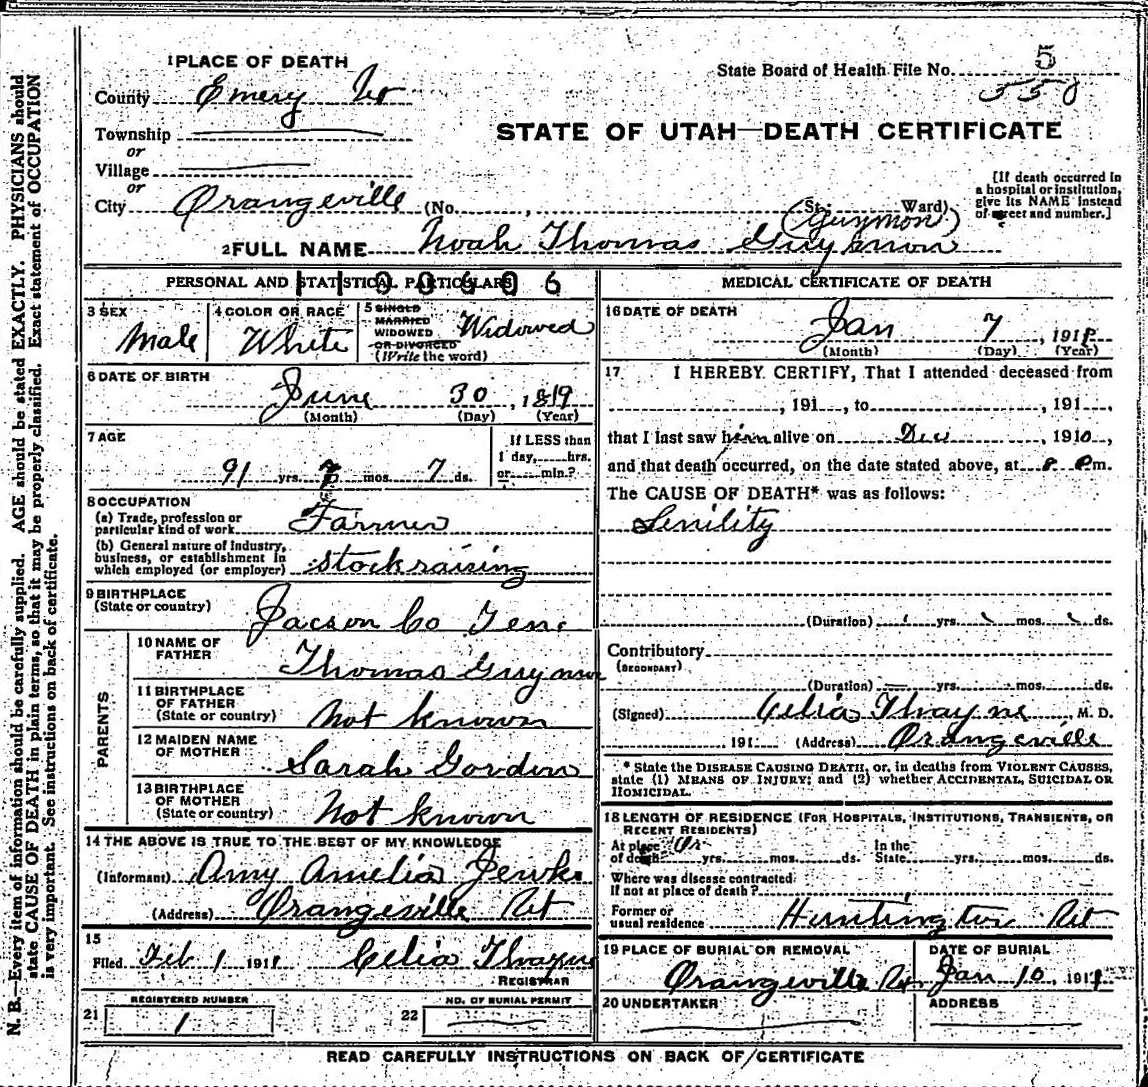 N. B.—Every item of information should be carefully supplied. AGE should be stated EXACTLY. PHYSICIANS should
state CAUSE OF DEATH in plain terms, so that it may be properly classified. Exact statement of OCCUPATION
is very important. See instructions on back of certificate.
1 PLACE OF DEATH
State Board of Health File No. 5
558
County Emery Ut
STATE OF UTAH—DEATH CERTIFICATE
Township
or
Village
or
City Orangeville (No. , St.; Ward)
[If death occurred in
a hospital or institution,
give its NAME instead
of street and number.]
(Guymon)
2 FULL NAME Noah Thomas Guymon
PERSONAL AND STATISTICAL PARTICULARS
1100606
3 SEX
Male
4 COLOR OR RACE
White
5 SINGLE
MARRIED
WIDOWED
OR DIVORCED
(Write the word)
Widowed
6 DATE OF BIRTH
June 30, 1819
(Month) (Day) (Year)
7 AGE
91 yrs. mos. 7 ds.
If LESS than
1 day, hrs.
or min.?
8 OCCUPATION
(a) Trade, profession or
particular kind of work Farmer
(b) General nature of industry,
business, or establishment in
which employed (or employer) stockraising
9 BIRTHPLACE
(State or country)
Jacson Co Ten.
PARENTS
10 NAME OF
FATHER
Thomas Guymon
11 BIRTHPLACE
OF FATHER
(State or country)
Not known
12 MAIDEN NAME
OF MOTHER
Sarah Gordin
13 BIRTHPLACE
OF MOTHER
(State or country)
Not known
14 THE ABOVE IS TRUE TO THE BEST OF MY KNOWLEDGE
(Informant) Amy Amelia Jewks
(Address) Orangeville Ut
15
Filed Feb 1 1911 Celia Thayne
REGISTRAR
REGISTERED NUMBER
21 1
NO. OF BURIAL PERMIT
22
MEDICAL CERTIFICATE OF DEATH
16 DATE OF DEATH
Jan 7, 1911
(Month) (Day) (Year)
17 I HEREBY CERTIFY, That I attended deceased from
, 191 , to , 191 ,
that I last saw him alive on Dec , 1910,
and that death occurred, on the date stated above, at 8 P m.
The CAUSE OF DEATH* was as follows:
Senility
(Duration) yrs. mos. ds.
Contributory
(SECONDARY)
(Duration) yrs. mos. ds.
(Signed) Celia Thayne M. D.
191 (Address) Orangeville
* State the DISEASE CAUSING DEATH, or, in deaths from VIOLENT CAUSES,
state (1) MEANS OF INJURY; and (2) whether ACCIDENTAL, SUICIDAL OR
HOMICIDAL.
18 LENGTH OF RESIDENCE (FOR HOSPITALS, INSTITUTIONS, TRANSIENTS, OR
RECENT RESIDENTS)
At place
of death yrs. mos. ds.
In the
State yrs. mos. ds.
Where was disease contracted
If not at place of death?
Former or
usual residence Huntington Ut
19 PLACE OF BURIAL OR REMOVAL
Orangeville Ut
DATE OF BURIAL
Jan 10, 1911
20 UNDERTAKER
ADDRESS
READ CAREFULLY INSTRUCTIONS ON BACK OF CERTIFICATE